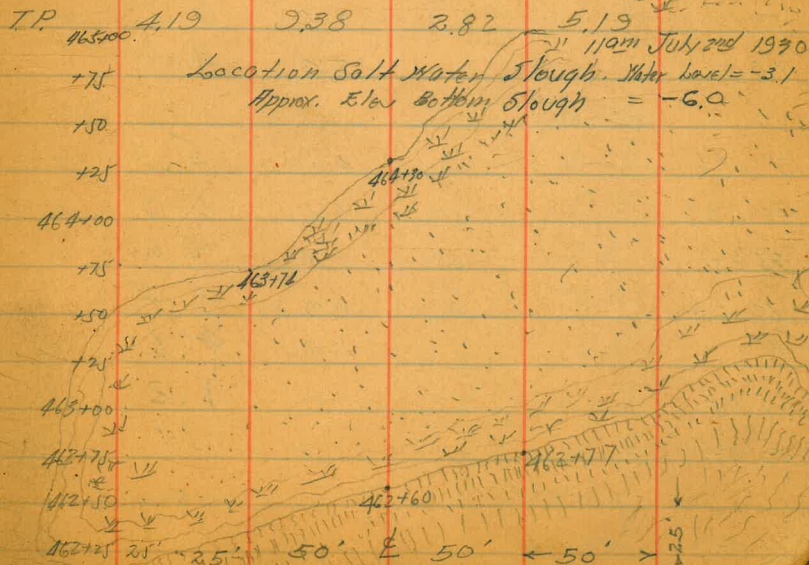 T.P. 4.19 9.38 2.82 5.19
465+00. 11am July 2nd 1930
+75 Location Salt Water Slough. Water Level = -3.1
Approx. Elev Bottom Slough = -6.0
+50
+25
464+30
464+00
+75
463+71
+50
+25
463+00
462+75
462+77
462+50
462+60
462+25 25' 25' 50' ℄ 50' 50'
25'